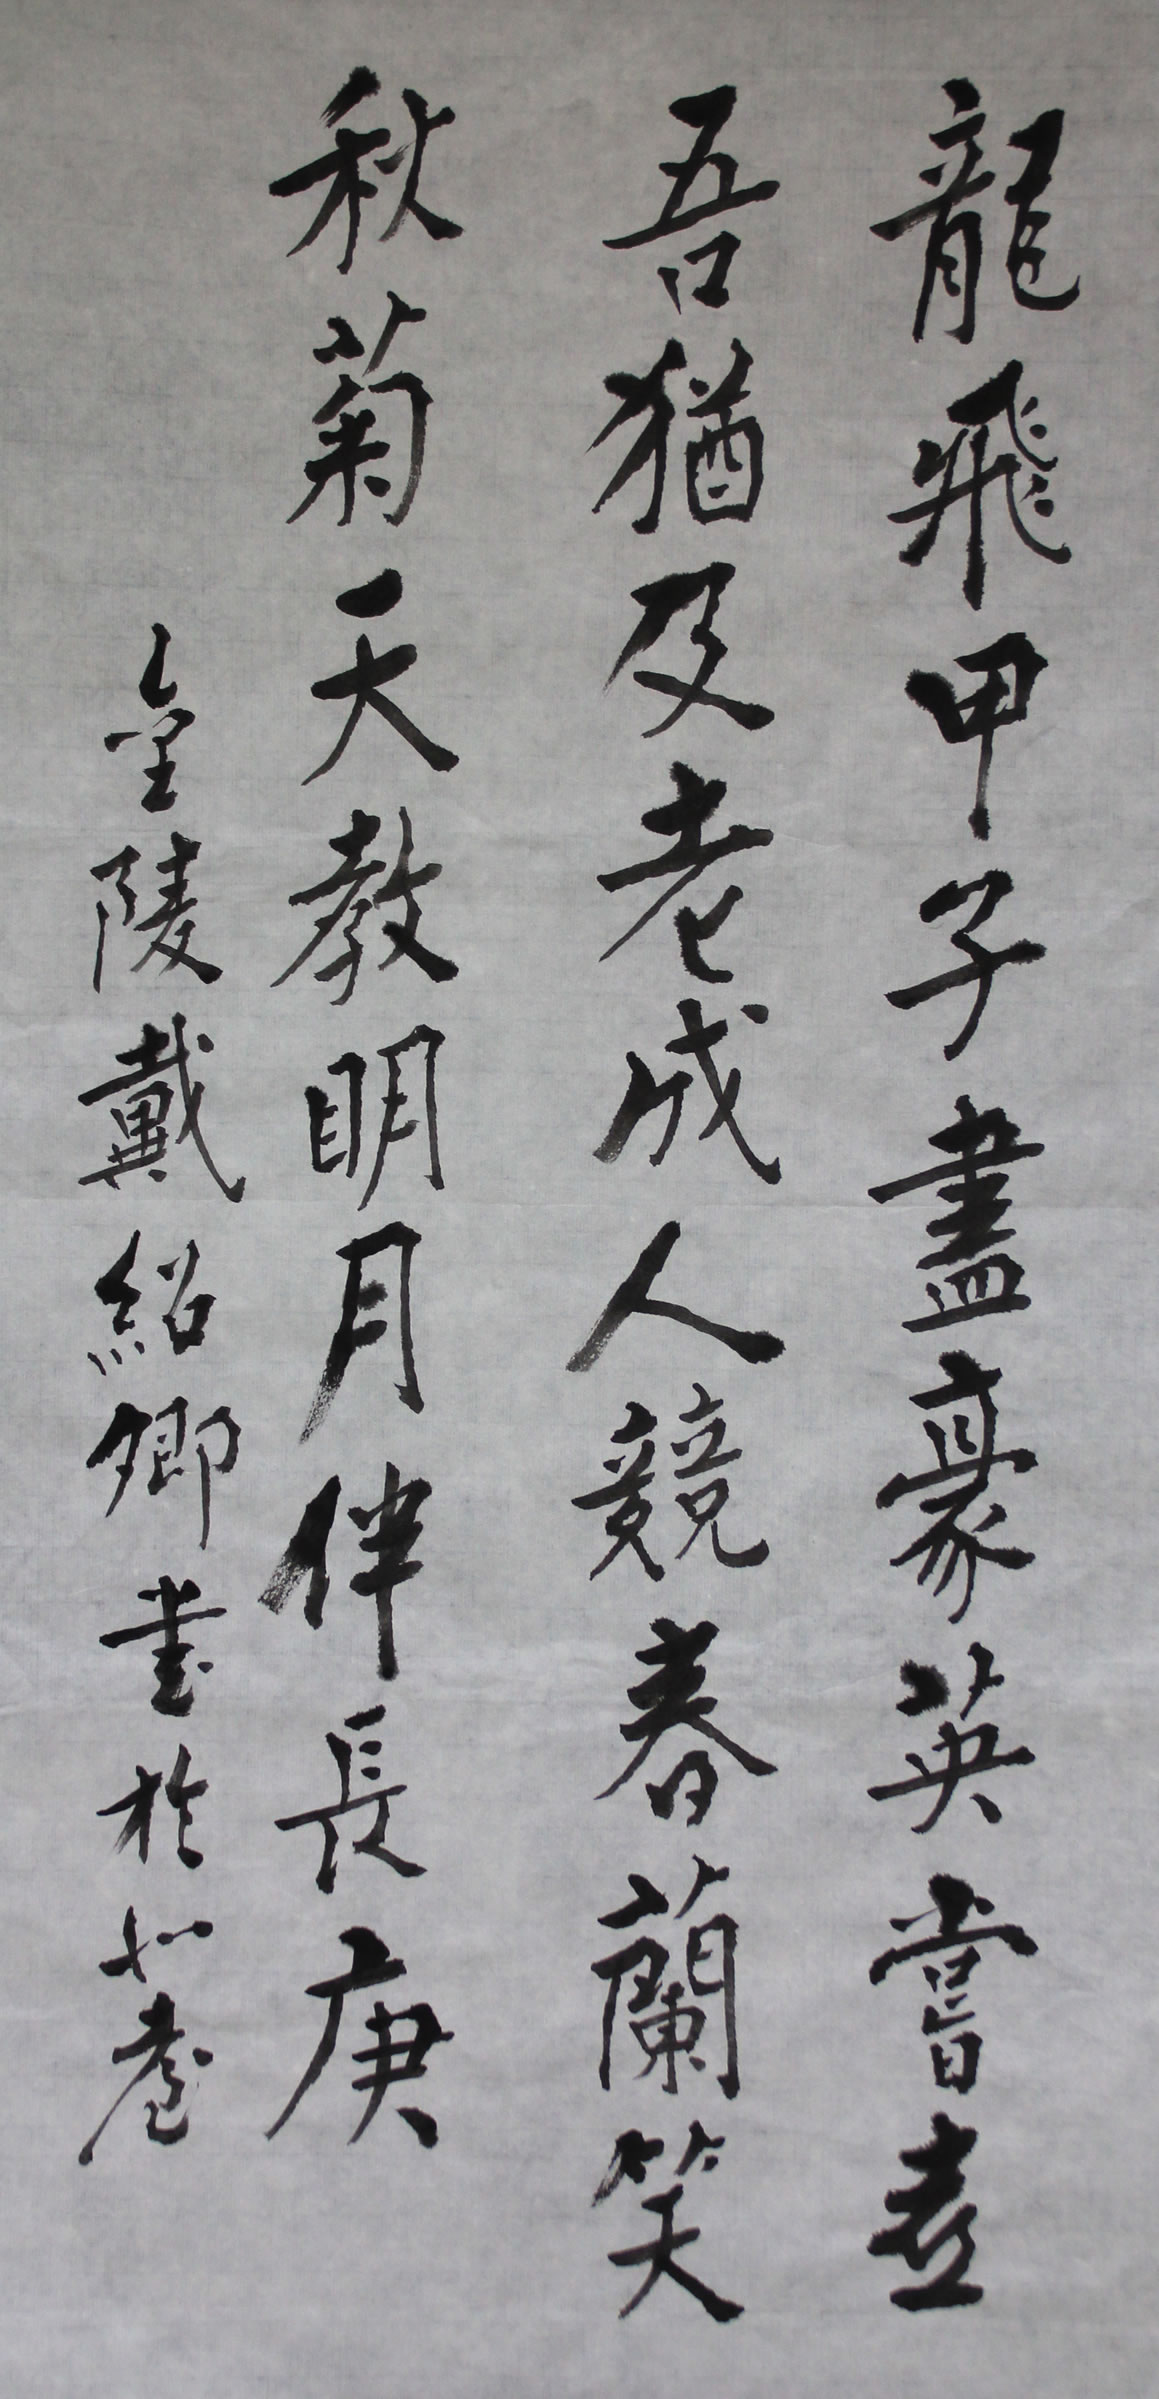 龍飛甲子盡豪英嘗喜
吾猶及老成人競春蘭笑
秋菊天教明月伴長庚
金陵戴紹卿書於如